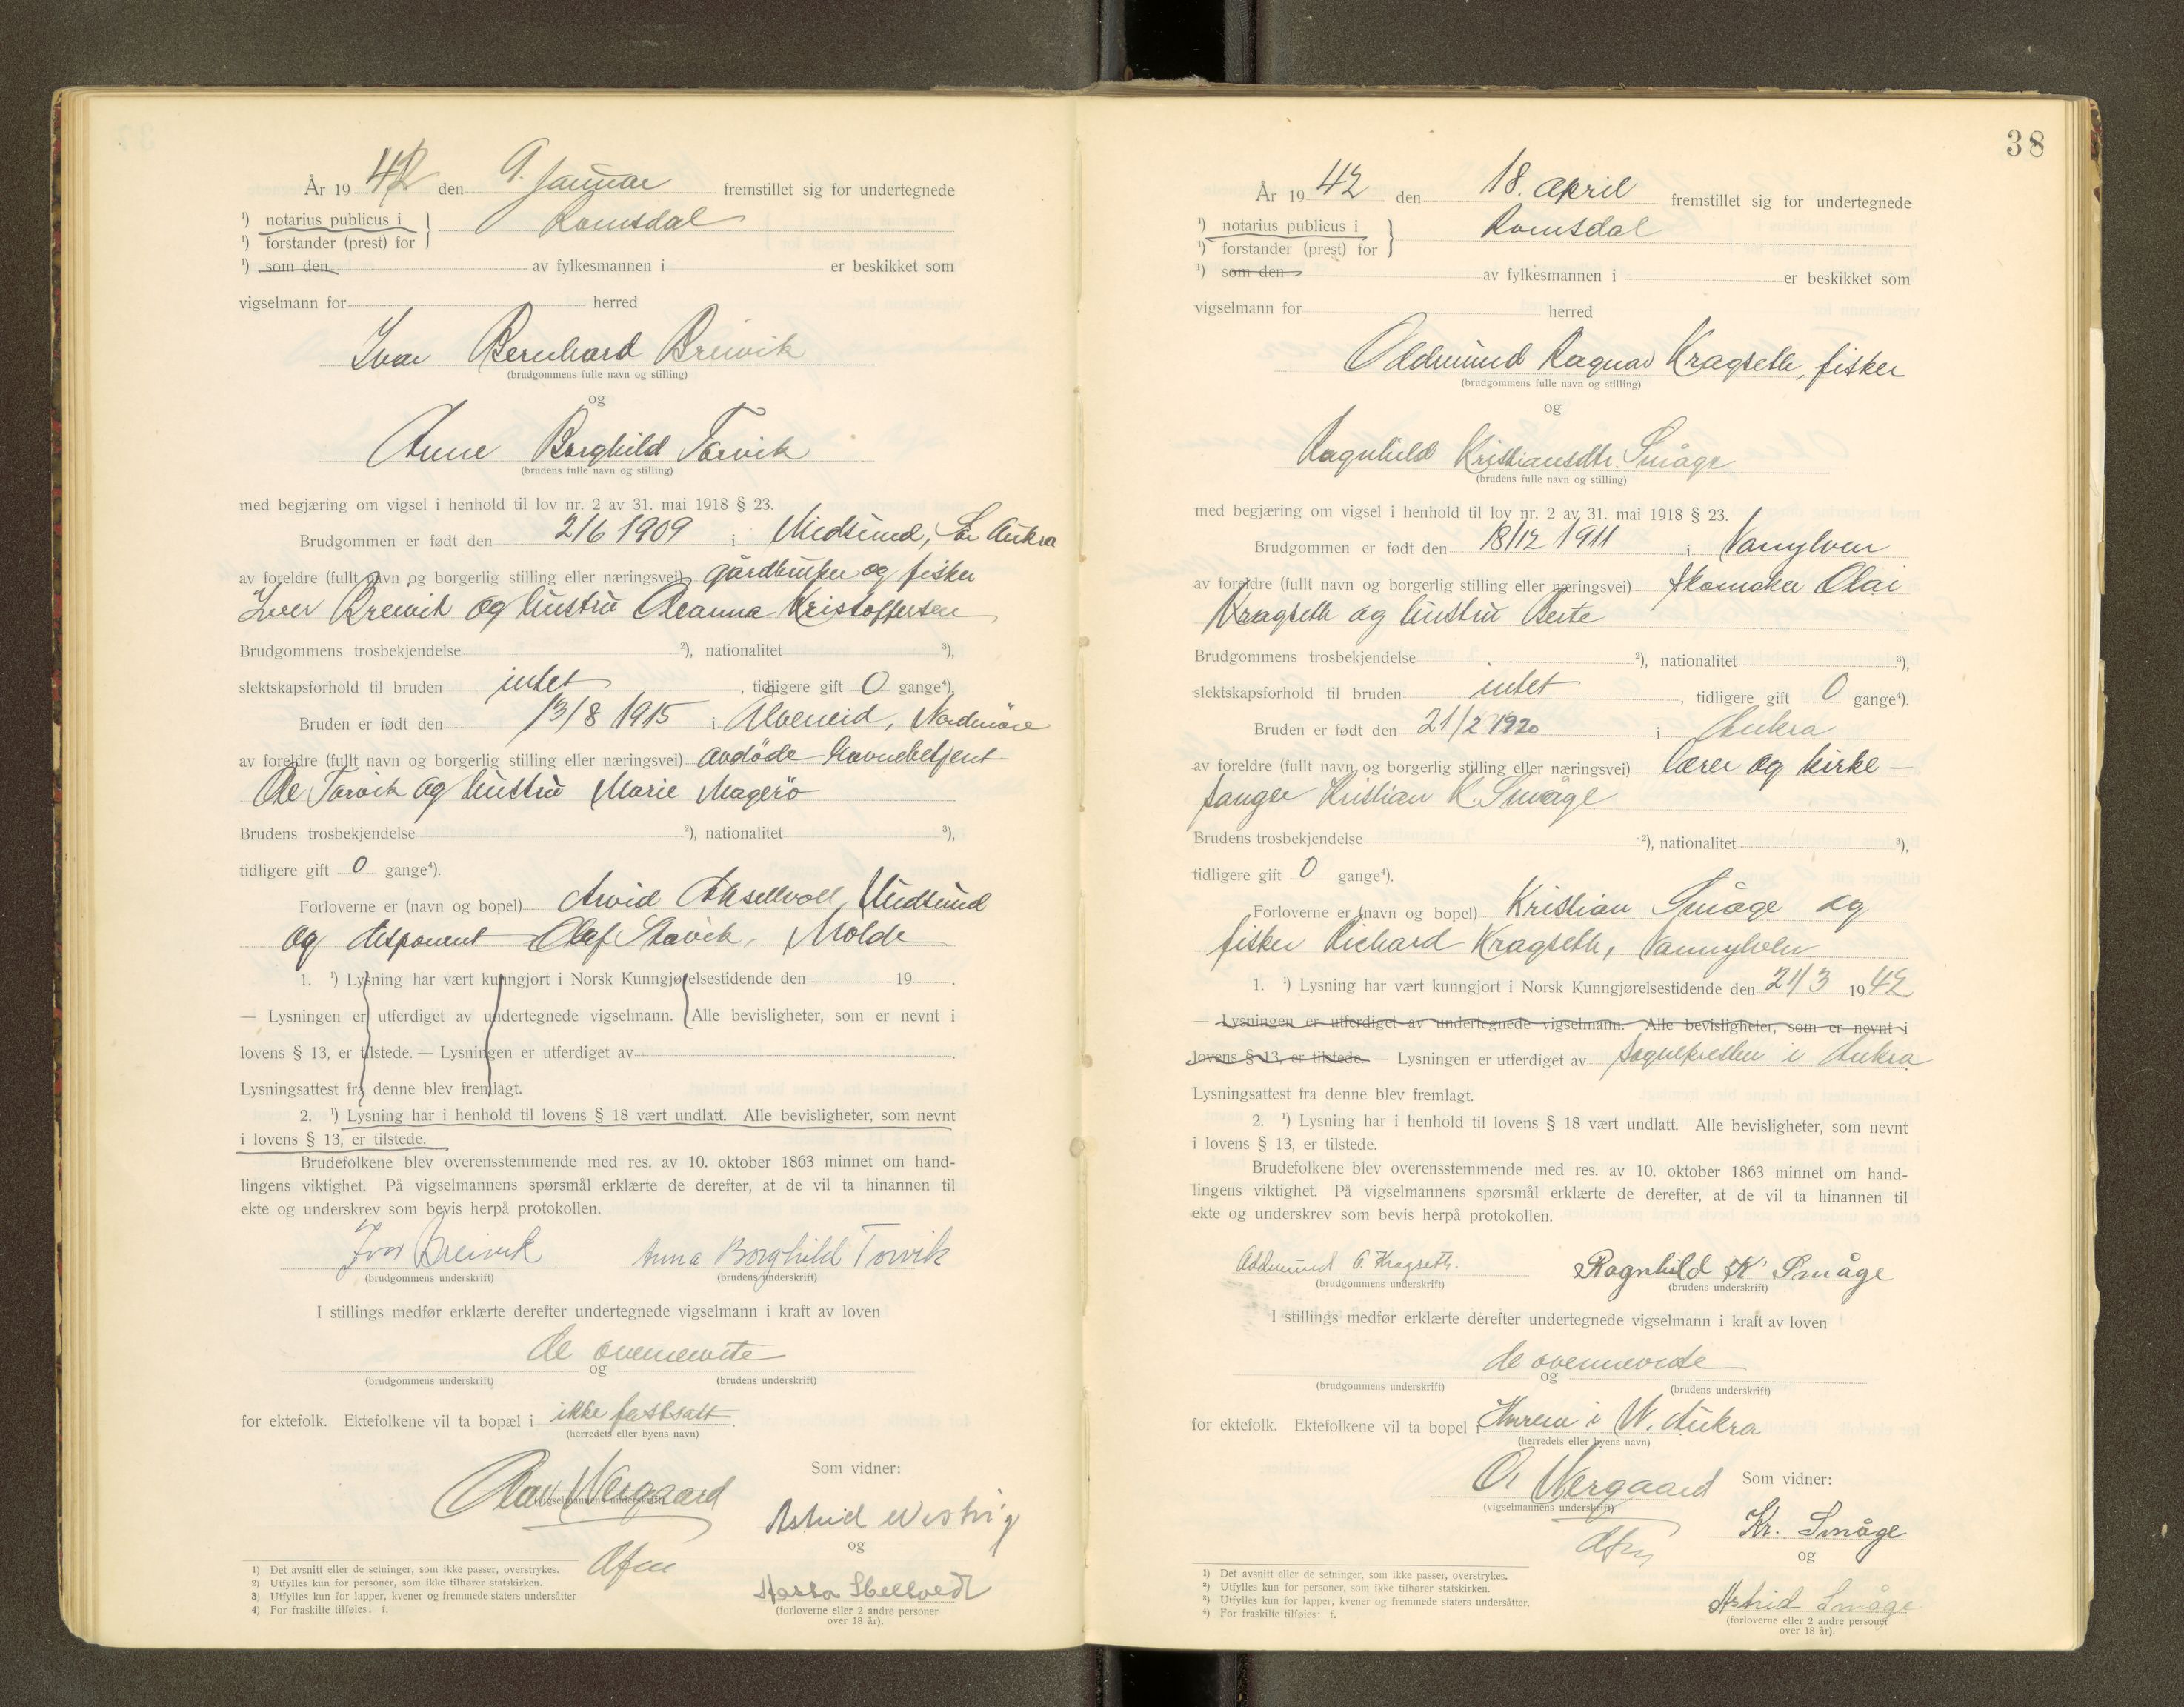 År 19 42 den 9. Januar fremstillet sig for undertegnede
¹) notarius publicus i } Romsdal
¹) forstander (prest) for
¹) som den av fylkesmannen i er beskikket som
vigselmann for herred
Ivar Bernhard Breivik
(brudgommens fulle navn og stilling)
og
Anne Borghild Torvik
(brudens fulle navn og stilling)
med begjæring om vigsel i henhold til lov nr. 2 av 31. mai 1918 § 23.
Brudgommen er født den 2/6 1909 i Midsund, Sør Aukra
av foreldre (fullt navn og borgerlig stilling eller næringsvei) gårdbruker og fisker
Iver Breivik og hustru Oleanna Kristoffersen
Brudgommens trosbekjendelse ²), nationalitet ³),
slektskapsforhold til bruden intet, tidligere gift 0 gange⁴).
Bruden er født den 13/8 1915 i Alverneid, Nordmöre
av foreldre (fullt navn og borgerlig stilling eller næringsvei) avdöde havnebetjent
Ole Torvik og hustru Marie Magerö
Brudens trosbekjendelse ²), nationalitet ³),
tidligere gift 0 gange⁴).
Forloverne er (navn og bopel) Arvid Aksellvoll, Midsund
og disponent Olaf Stavik, Molde
1. ¹) Lysning har vært kunngjort i Norsk Kunngjørelsestidende den 19 .
— Lysningen er utferdiget av undertegnede vigselmann. Alle bevisligheter, som er nevnt i
lovens § 13, er tilstede. — Lysningen er utferdiget av .
Lysningsattest fra denne blev fremlagt.
2. ¹) Lysning har i henhold til lovens § 18 vært undlatt. Alle bevisligheter, som nevnt
i lovens § 13, er tilstede.
Brudefolkene blev overensstemmende med res. av 10. oktober 1863 minnet om hand-
lingens viktighet. På vigselmannens spørsmål erklærte de derefter, at de vil ta hinannen til
ekte og underskrev som bevis herpå protokollen.
Ivar Breivik Anna Borghild Torvik
(brudgommens underskrift) (brudens underskrift)
I stillings medfør erklærte derefter undertegnede vigselmann i kraft av loven
de ovennevnte
og
(brudgommens underskrift) (brudens underskrift)
for ektefolk. Ektefolkene vil ta bopæl i ikke fastsatt.
(herredets eller byens navn)
Som vidner:
Olav Wergaard
(vigselmannens underskrift)
Astrid Westvig
og
(forloverne eller 2 andre personer
over 18 år).
1) Det avsnitt eller de setninger, som ikke passer, overstrykes.
2) Utfylles kun for personer, som ikke tilhører statskirken.
3) Utfylles kun for lapper, kvener og fremmede staters undersåtter
4) For fraskilte tilføies: f.
38
År 19 42 den 18. april fremstillet sig for undertegnede
¹) notarius publicus i } Romsdal
¹) forstander (prest) for
¹) som den av fylkesmannen i er beskikket som
vigselmann for herred
Oddmund Ragnar Kragseth, fisker
(brudgommens fulle navn og stilling)
og
Ragnhild Kristiansdtr. Småge
(brudens fulle navn og stilling)
med begjæring om vigsel i henhold til lov nr. 2 av 31. mai 1918 § 23.
Brudgommen er født den 18/12 1911 i Vannylven
av foreldre (fullt navn og borgerlig stilling eller næringsvei) skomaker Olai
Kragseth og hustru Berte
Brudgommens trosbekjendelse ²), nationalitet ³),
slektskapsforhold til bruden intet, tidligere gift 0 gange⁴).
Bruden er født den 21/2 1920 i Aukra
av foreldre (fullt navn og borgerlig stilling eller næringsvei) lærer og kirke-
sanger Kristian K. Småge
Brudens trosbekjendelse ²), nationalitet ³),
tidligere gift 0 gange⁴).
Forloverne er (navn og bopel) Kristian Småge og
fisker Richard Kragseth, Vannylven.
1. ¹) Lysning har vært kunngjort i Norsk Kunngjørelsestidende den 21/3 1942
— Lysningen er utferdiget av undertegnede vigselmann. Alle bevisligheter, som er nevnt i
lovens § 13, er tilstede. — Lysningen er utferdiget av sognepresten i Aukra
Lysningsattest fra denne blev fremlagt.
2. ¹) Lysning har i henhold til lovens § 18 vært undlatt. Alle bevisligheter, som nevnt
i lovens § 13, er tilstede.
Brudefolkene blev overensstemmende med res. av 10. oktober 1863 minnet om hand-
lingens viktighet. På vigselmannens spørsmål erklærte de derefter, at de vil ta hinannen til
ekte og underskrev som bevis herpå protokollen.
Oddmund O. Kragseth. Ragnhild K. Småge
(brudgommens underskrift) (brudens underskrift)
I stillings medfør erklærte derefter undertegnede vigselmann i kraft av loven
de ovennevnte
og
(brudgommens underskrift) (brudens underskrift)
for ektefolk. Ektefolkene vil ta bopel i i N. Aukra
(herredets eller byens navn)
Som vidner:
O. Wergaard
(vigselmannens underskrift)
Kr. Småge
og
Astrid Småge
(forloverne eller 2 andre personer
over 18 år).
1) Det avsnitt eller de setninger, som ikke passer, overstrykes.
²) Utfylles kun for personer, som ikke tilhører statskirken.
³) Utfylles kun for lapper, kvener og fremmede staters undersåtter.
⁴) For fraskilte tilføies: f.